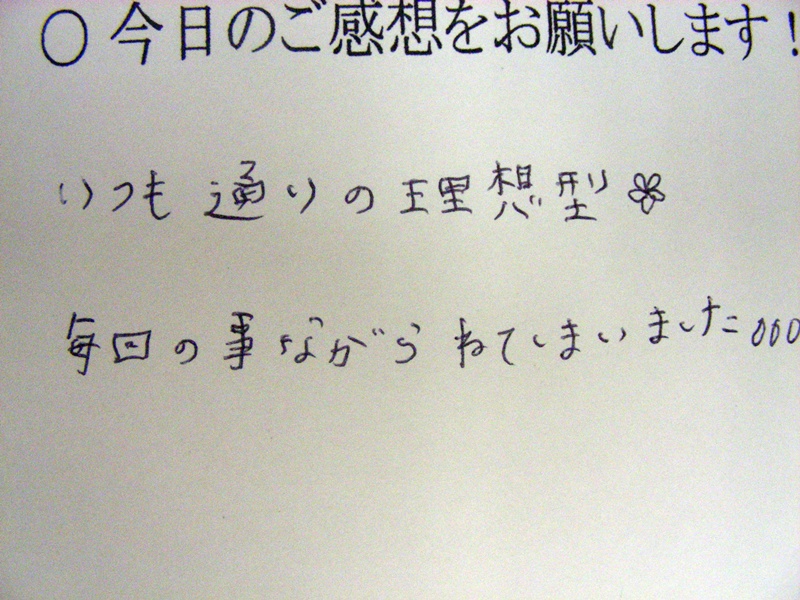 ○ 今日のご感想をお願いします！
いつも通りの理想型
毎回の事ながらねてしまいました。。。